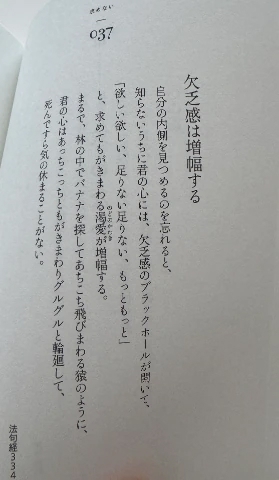 求めない
037
欠乏感は増幅する
自分の内側を見つめるのを忘れると、
知らないうちに君の心には、欠乏感のブラックホールが開いて、
「欲しい欲しい、足りない足りない、もっともっと」
と、求めてもがきまわる渇愛が増幅する。
まるで、林の中でバナナを探してあちこち飛びまわる猿のように、
君の心はあっちこっちともがきまわりグルグルと輪廻して、
死んですら気の休まることがない。
法句経334